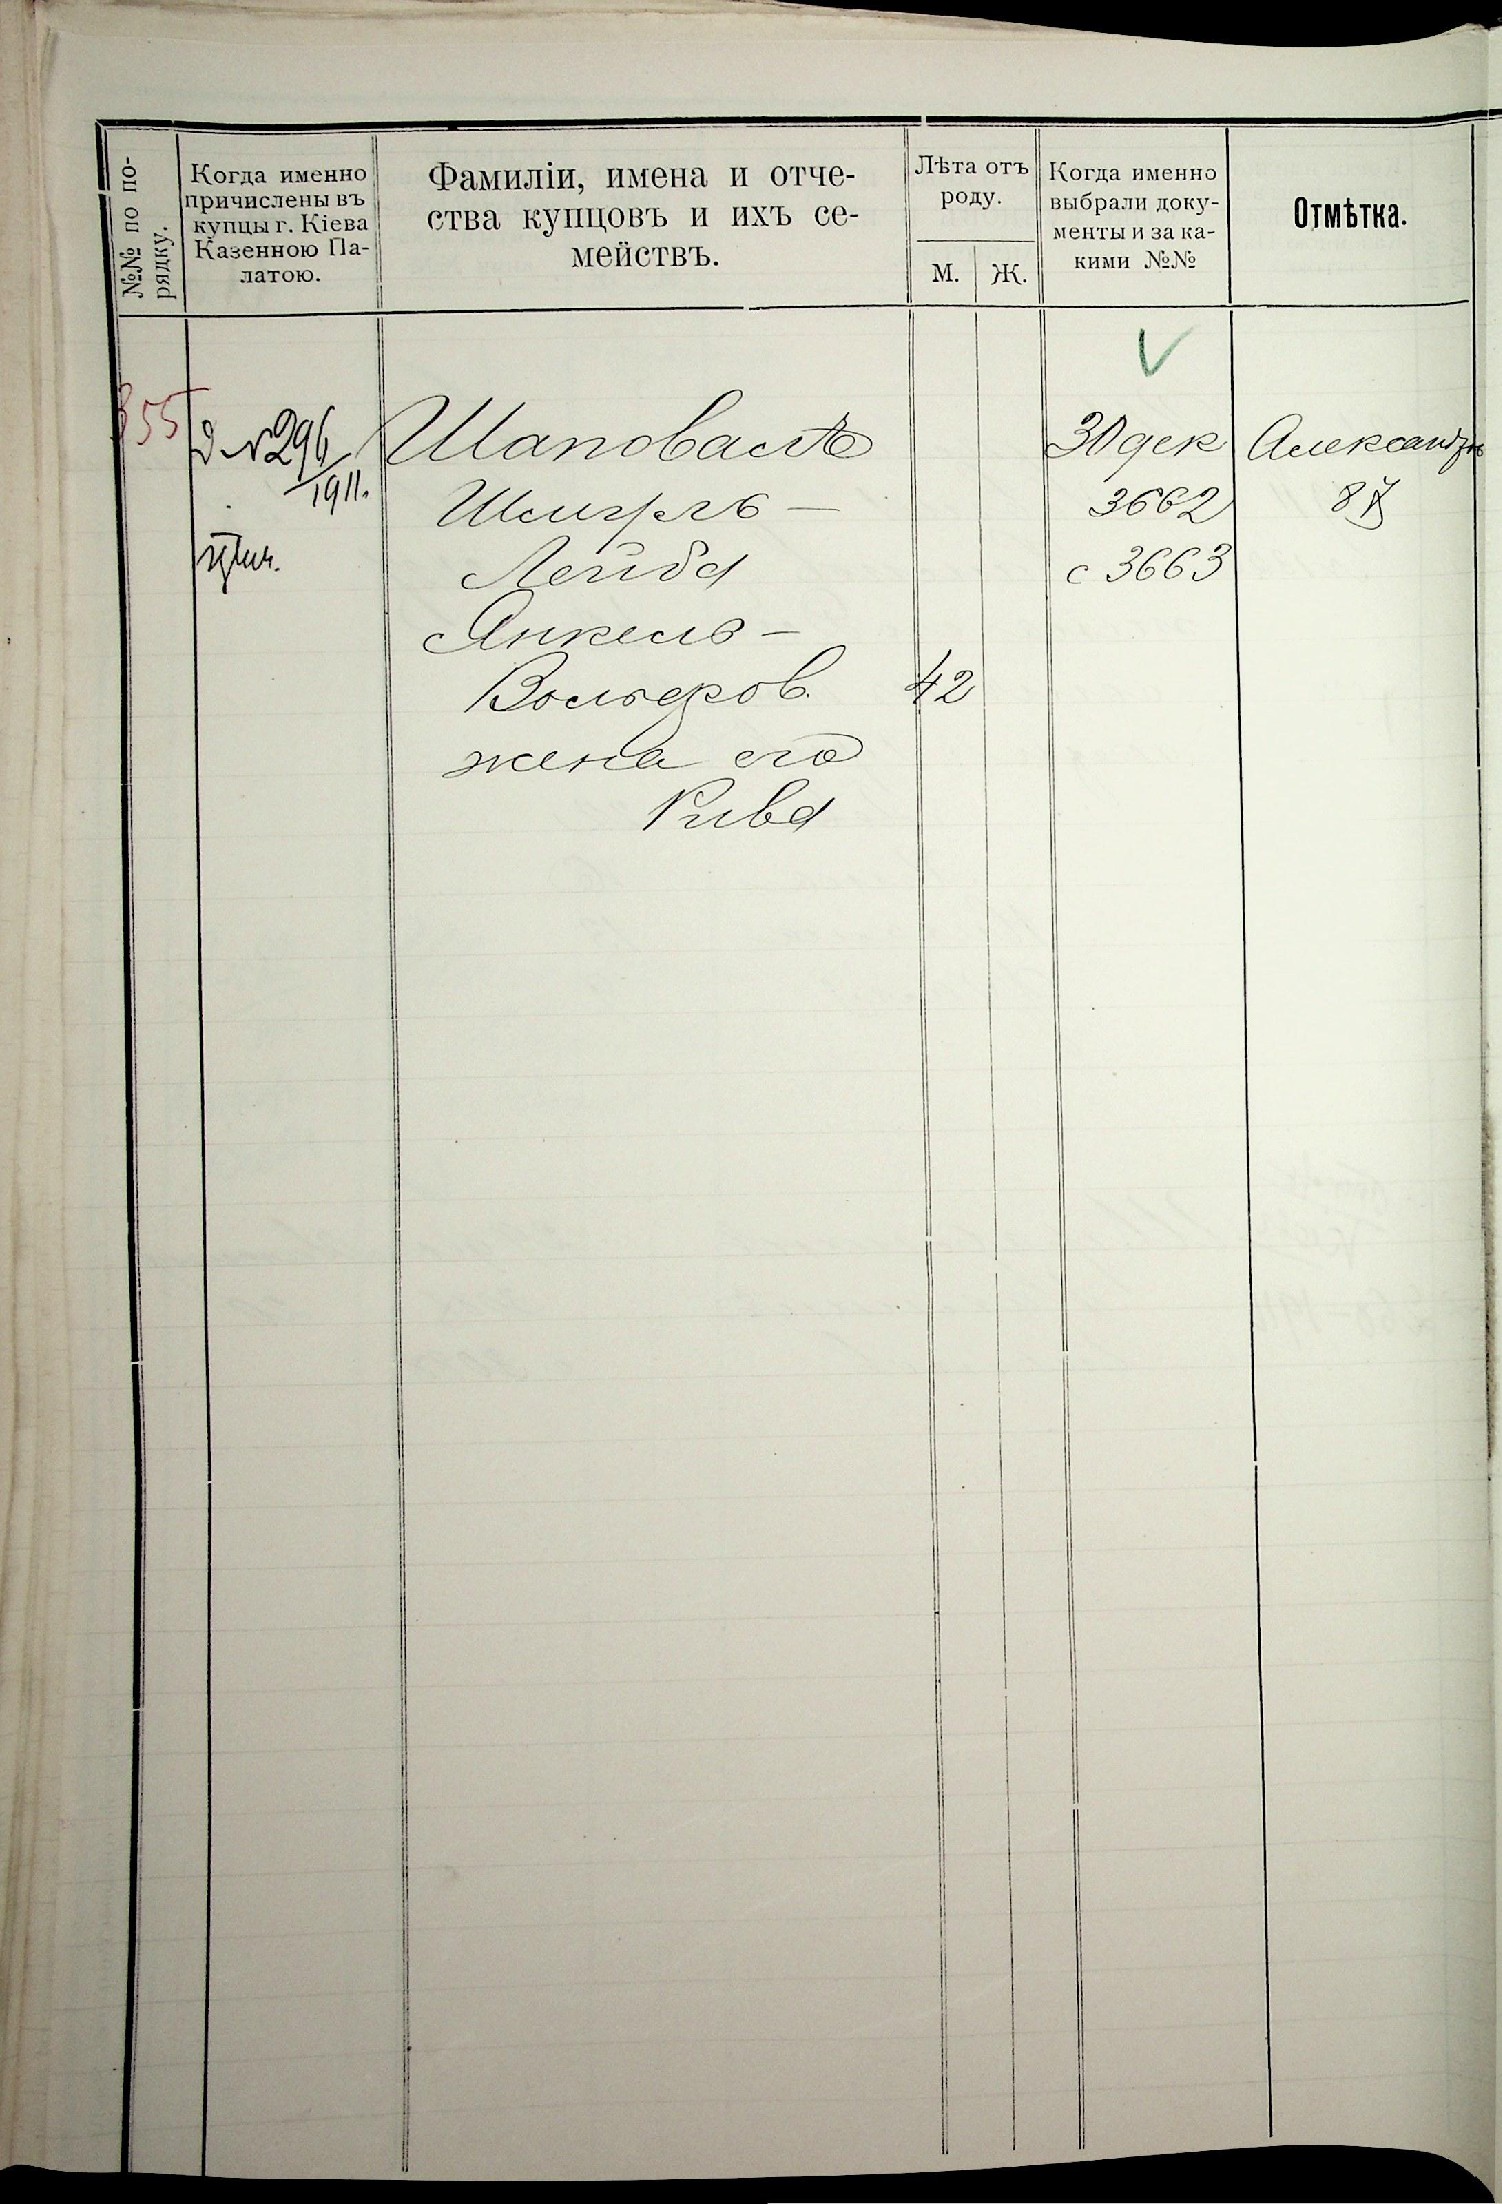 №№ по по-
рядку.
Когда именно
причислены въ
купцы г. Кіева
Казенною Па-
латою.
Фамиліи, имена и отче-
ства купцовъ и ихъ се-
мействъ.
Лѣта отъ
роду.
М.
Ж.
Когда именно
выбрали доку-
менты и за ка-
кими №№
Отмѣтка.
355
д № 296
1911.
Шаповалъ
Шмуль –
Лейба
Янкель –
Вольфов.
жена его
Рива
42
30 дек
3662
с 3663